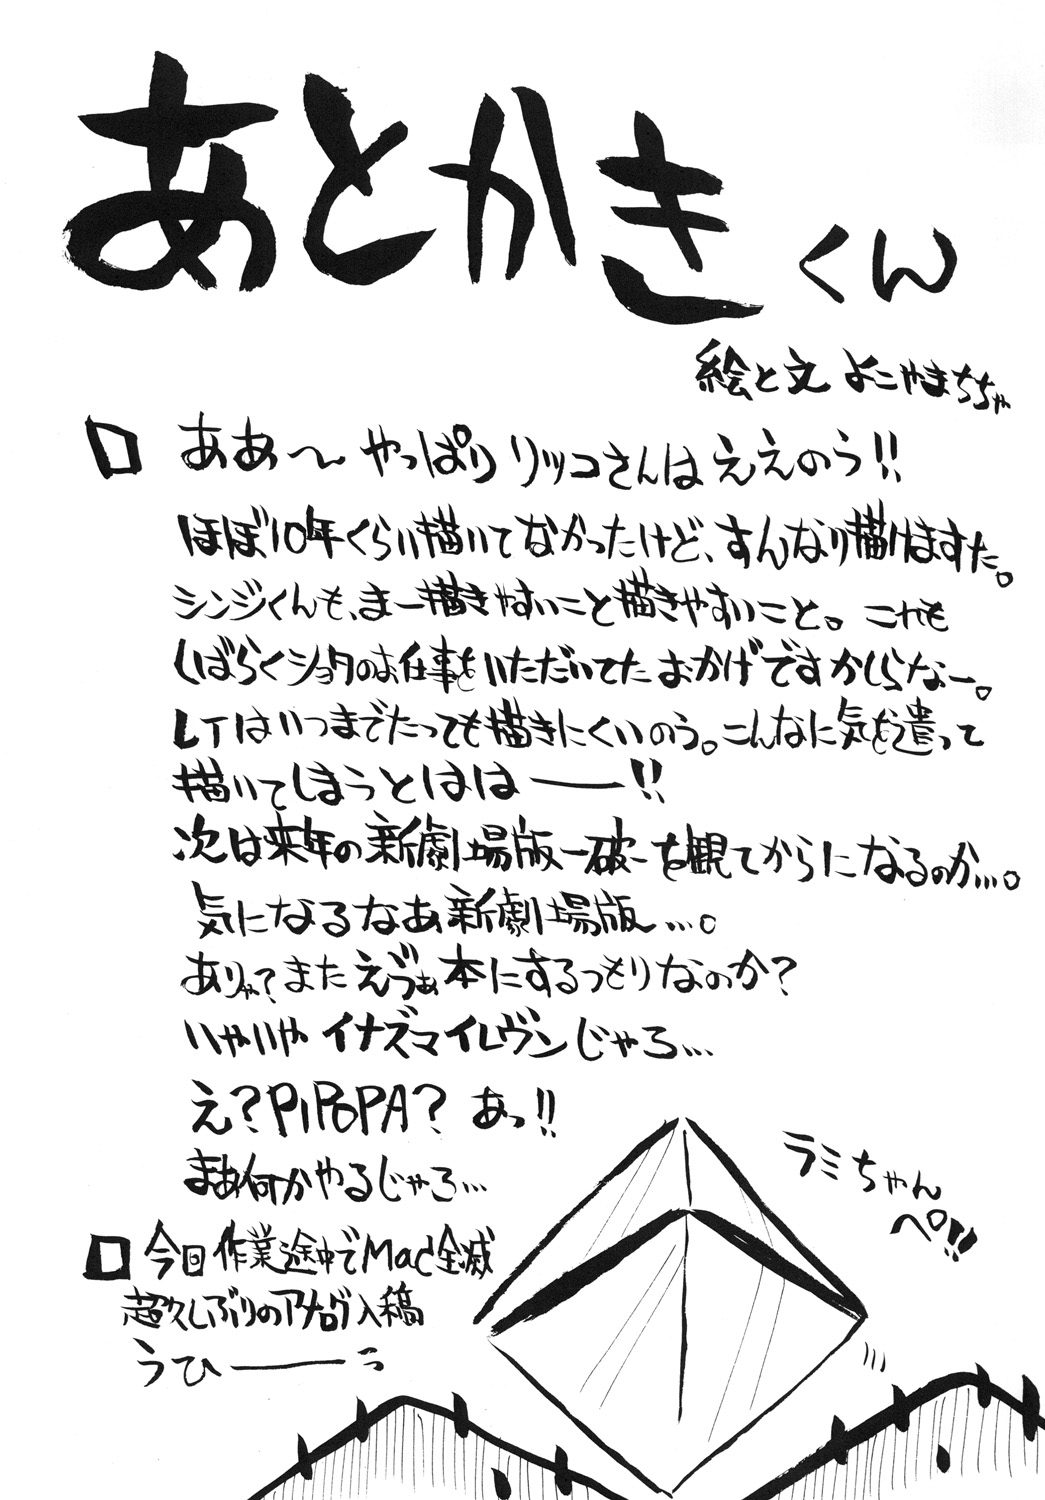 あとかきくん
絵と文 よこやまちちゃ
□ ああ〜やっぱりリッコさんはええのう!!
ほぼ10年くらい描いてなかったけど、すんなり描けますた。
シンジくんも、まー描きやすいこと描きやすいこと。これも
しばらくショタのお仕事をいただいてたおかげですかしらなー。
レイはいつまでたっても描きにくいのう。こんなに気を遣って
描いてしまうとはは――!!
次は来年の新劇場版-破-を観てからになるのか…。
気になるなあ新劇場版…。
ありゃ?またえゔぁ本にするつもりなのか?
いやいやイナズマイレヴンじゃろ…
え?PiPoPA?あっ!!
まあ何かやるじゃろ…
ラミちゃん
ペ!!
□ 今回作業途中でMac全滅
超久しぶりのアナログ入稿
うひ――っ